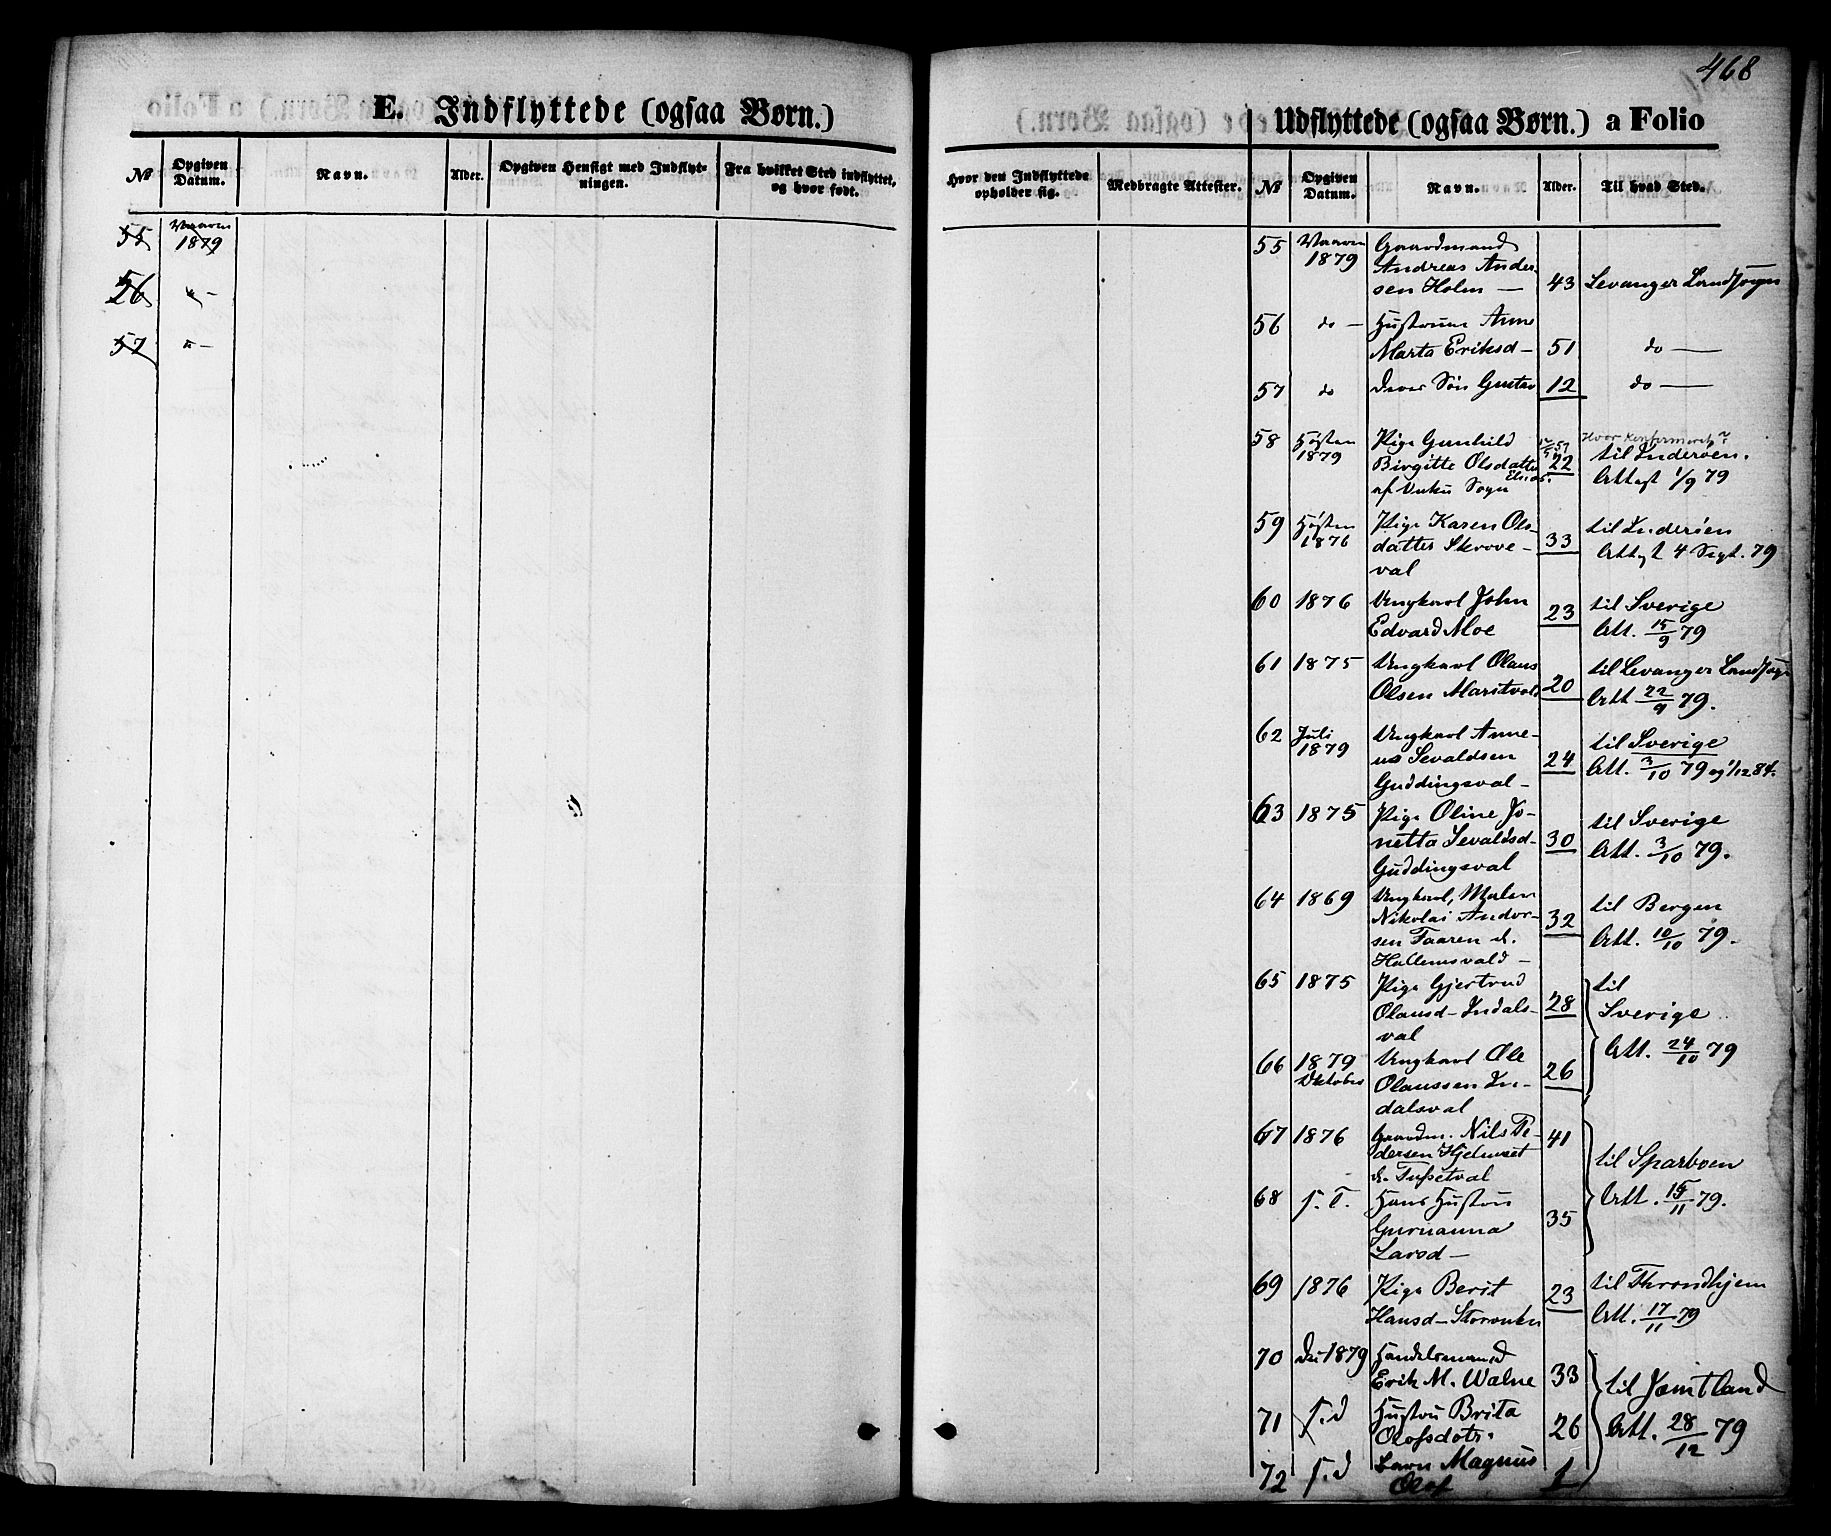 468
E. Indflyttede (ogsaa Børn.)
№ Opgiven Datum. Navn. Alder. Opgiven Hensigt med Indflytningen. Fra hvilket Sted indflyttet, og hvor født.
55 Vaaren 1879
56 " —
57 " —
Udflyttede (ogsaa Børn.) a Folio
Hvor den Indflyttede opholder sig. Medbragte Attester. № Opgiven Datum. Navn. Alder. Til hvad Sted.
55 Vaaren Gaardmand
1879 Andreas Ander-
sen Holm — 43 Levanger Landsogn
56 do — Hustruen Anne
Marta Eriksd — 51 do —
57 do deres Søn Gustav 12 do —
Hvor Konfirmeret?
58 Høsten Pige Gunhild til Inderøen.
1879 Birgitte Olsdatter 22
af Vuku Sogn Attest 1/9 79
59 Høsten Pige Karen Ols- til Inderøen
1876 datter Skrove- 33 Attest 4 Sept. 79
val
60 1876 Ungkarl John 23 til Sverige
Edvard Moe Att. 15/9 79
61 1875 Ungkarl Olaus til Levanger Landsogn
Olsen Maritvold 20 Att 22/9 79.
62 Juli Ungkarl Anne- til Sverige
1879 us Sevaldsen 24 Att. 3/10 79 og 1/12 84.
Guddingsval —
63 1875 Pige Oline Jo- til Sverige
netta Sevaldsd — 30 Att. 3/10 79.
Guddingsval
64 1869 Ungkarl, Malen til Bergen
Nikolai Ander- 32
sen Faaren d. Att. 10/10 79.
Hallemsvald —
65 1875 Pige Gjertrud til
Olausd — Indals- 28 Sverige
val Att. 24/10 79
66 1879 Ungkarl Ole
Oktober Olaussen In- 26
dalsval
67 1876 Gaardm. Nils Pe- 41
dersen Hjelmset til Sparboen
d. Tufsetval Att. 15/11 79.
68 s. T. Hans Hustru
Gurianna 35
Larsd —
69 1876 Pige Berit 23 til Throndhjem
Hansd — Storvuku Att. 17/11 79
70 Dec 1879 Handelsmand
Erik M. Walne 33 til Jæmtland
71 s. d Hustru Brita
Olofsdotr. 26 Att. 28/12 79
72 s. d Barn Magnus 1
Olof